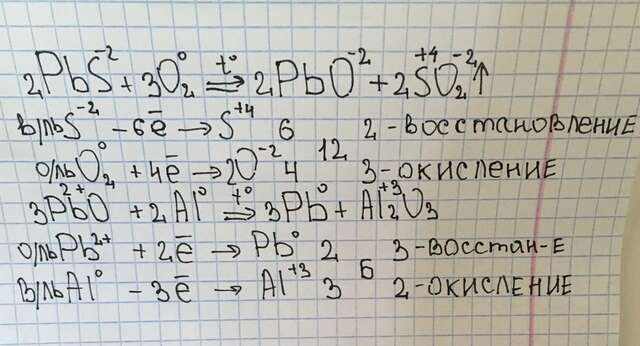 2PbS⁻² + 3O₂⁰ =t°=> 2PbO⁻² + 2S⁺⁴O₂⁻²↑
в/льS⁻² - 6ē → S⁺⁴ 6 2 - восстановление
о/льO₂⁰ + 4ē → 2O⁻² 4 12 3 - окисление
3Pb²⁺O + 2Al⁰ =t°=> 3Pb⁰ + Al₂⁺³O₃
о/льPb²⁺ + 2ē → Pb⁰ 2 3 - восстан-е
в/льAl⁰ - 3ē → Al⁺³ 3 6 2 - окисление